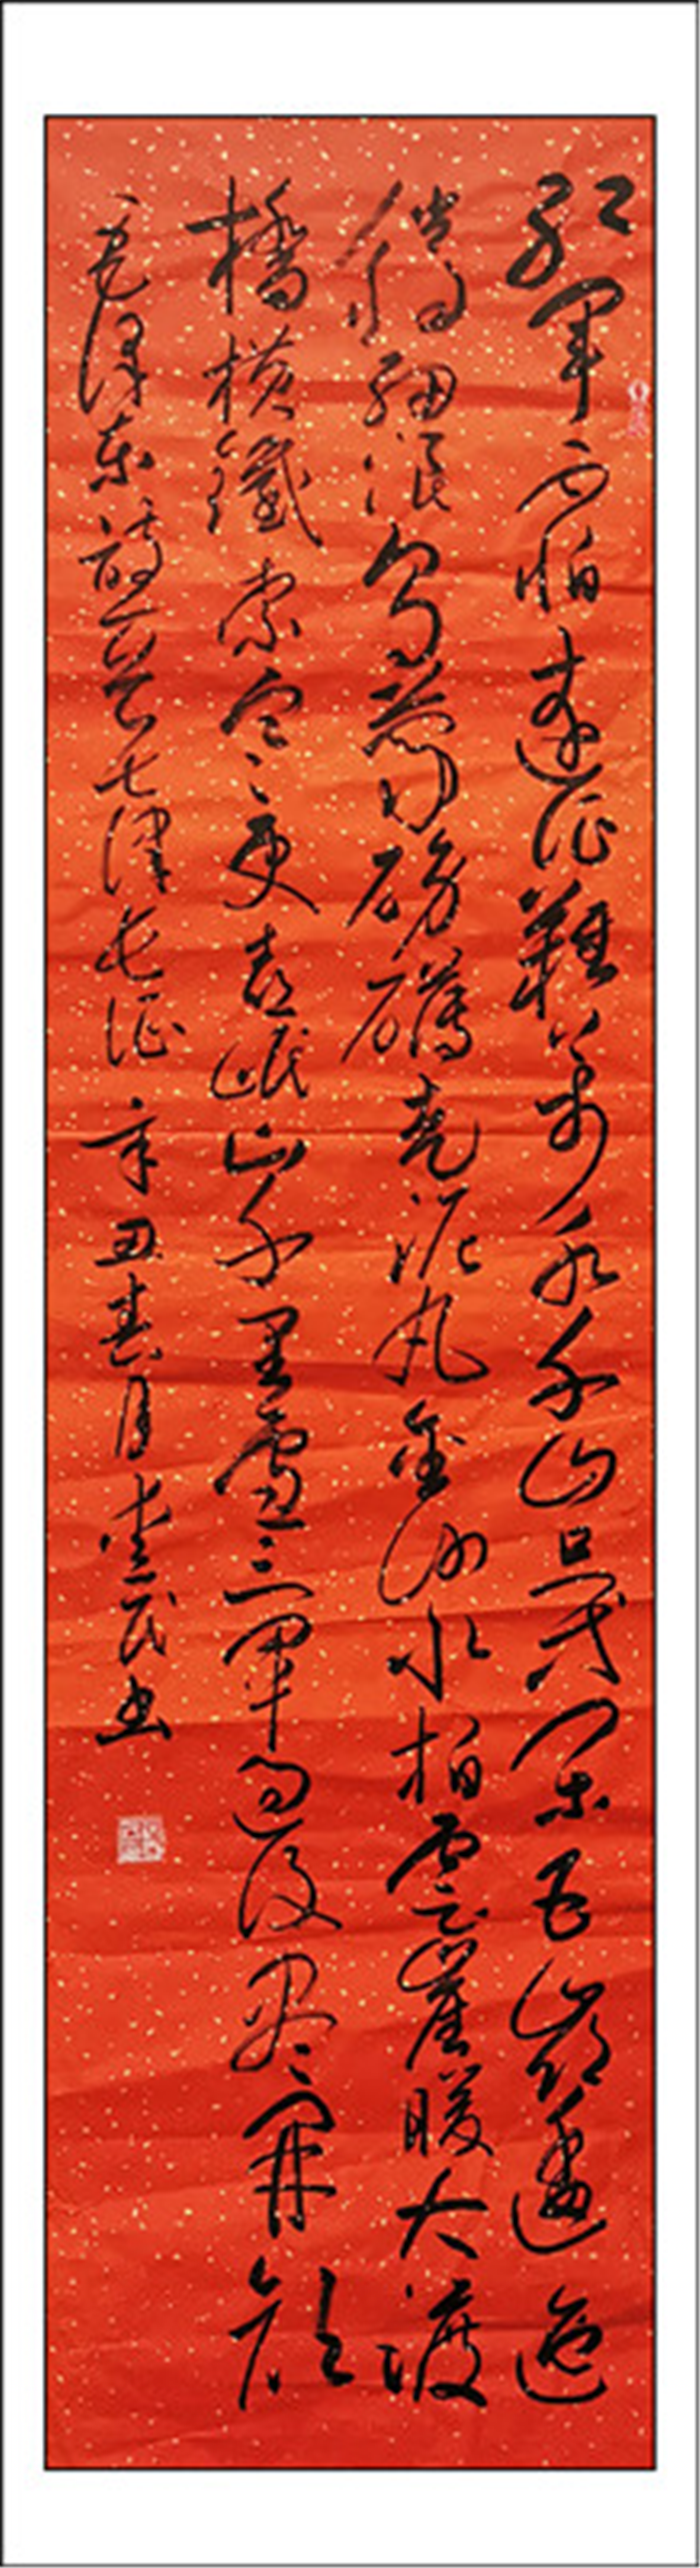 红军不怕远征难万水千山只等闲五岭逶迤
腾细浪乌蒙磅礴走泥丸金沙水拍云崖暖大渡
橋横鐵索寒更喜岷山千里雪三军过后尽开颜
毛泽东诗一首七律长征辛丑春月民书